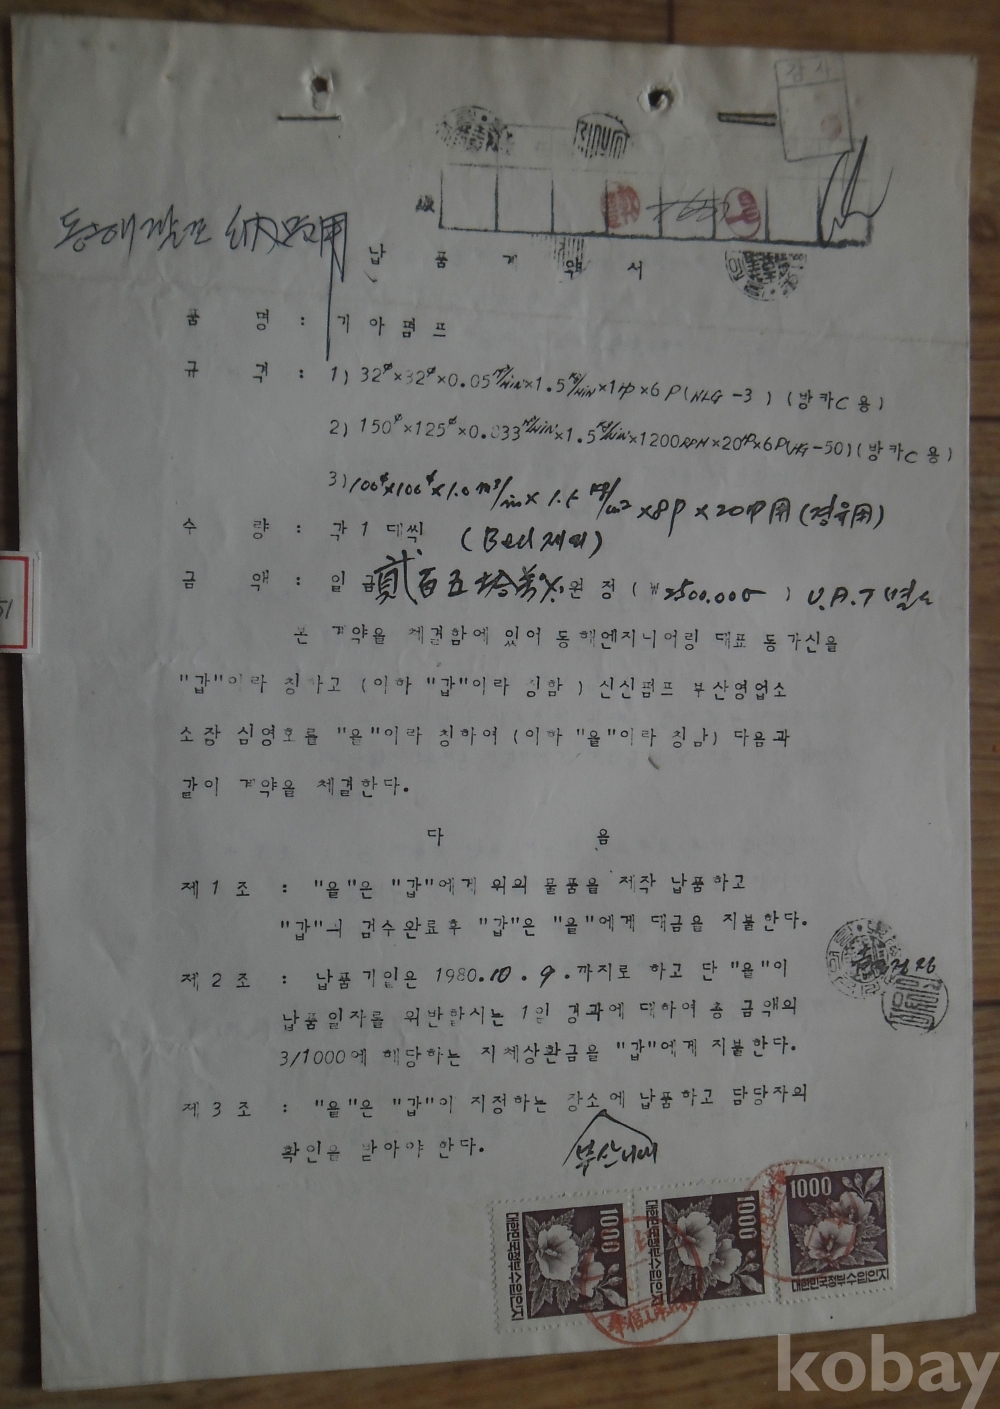 감사
납품계약서
품 명 : 기아펌프
규 격 : 1) 32ø×32ø×0.05㎥/min×1.5 ×1HP×6P(NLG-3) (방카C용)
2) 150ø×125ø×0.833㎥/min×1.5 ×1200RPM×20HP×6P( -50) (방카C용)
3) 100ø×100ø×1.0 m³/min × 1.5 kg/cm² ×8P × 20HP用 (경유用)
수 량 : 각 1 대씩 (Bed 제외)
금 액 : 일금 貳百五拾萬 원정 (₩2500.000 ) V.A.T 별도
본 계약을 체결함에 있어 동해엔지니어링 대표 동가신을
"갑"이라 칭하고 (이하 "갑"이라 칭함) 신신펌프 부산영업소
소장 심영호를 "을"이라 칭하여 (이하 "을"이라 칭함) 다음과
같이 계약을 체결한다.
다 음
제 1 조 : "을"은 "갑"에게 위의 물품을 제작 납품하고
"갑"의 검수완료후 "갑"은 "을"에게 대금을 지불한다.
제 2 조 : 납품기일은 1980.10.9.까지로 하고 단 "을"이
납품일자를 위반할시는 1일 경과에 대하여 총 금액의
3/1000에 해당하는 지체상환금을 "갑"에게 지불한다.
제 3 조 : "을"은 "갑"이 지정하는 장소에 납품하고 담당자의
부산시내
확인을 받아야 한다.
1000
대한민국정부수입인지
1000
대한민국정부수입인지
1000
대한민국정부수입인지
51
kobay